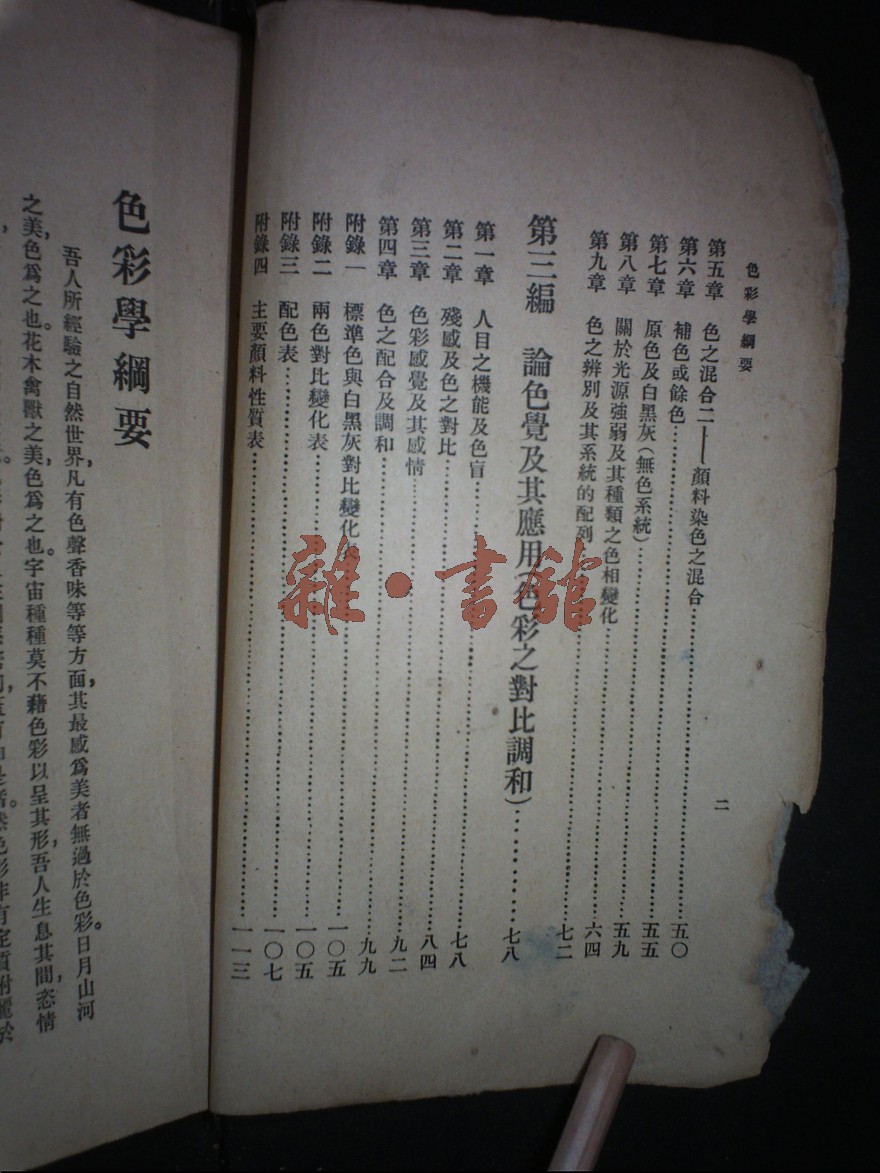 色彩學綱要
二
第五章　色之混合二——顏料染色之混合……五〇
第六章　補色或餘色……五五
第七章　原色及白黑灰（無色系統）……五九
第八章　關於光源強弱及其種類之色相變化……六四
第九章　色之辨別及其系統的配列……七二
第三編　論色覺及其應用（色彩之對比調和）……七八
第一章　人目之機能及色盲……七八
第二章　殘感及色之對比……八四
第三章　色彩感覺及其感情……九二
第四章　色之配合及調和……九九
附錄一　標準色與白黑灰對比變化表……一〇五
附錄二　兩色對比變化表……一〇五
附錄三　配色表……一〇七
附錄四　主要顏料性質表……一一三
雜·書館
色彩學綱要
吾人所經驗之自然世界，凡有色聲香味等等方面，其最感爲美者無過於色彩。日月山河
之美，色爲之也。花木禽獸之美，色爲之也。宇宙種種莫不藉色彩以呈其形，吾人生息其間，恣情